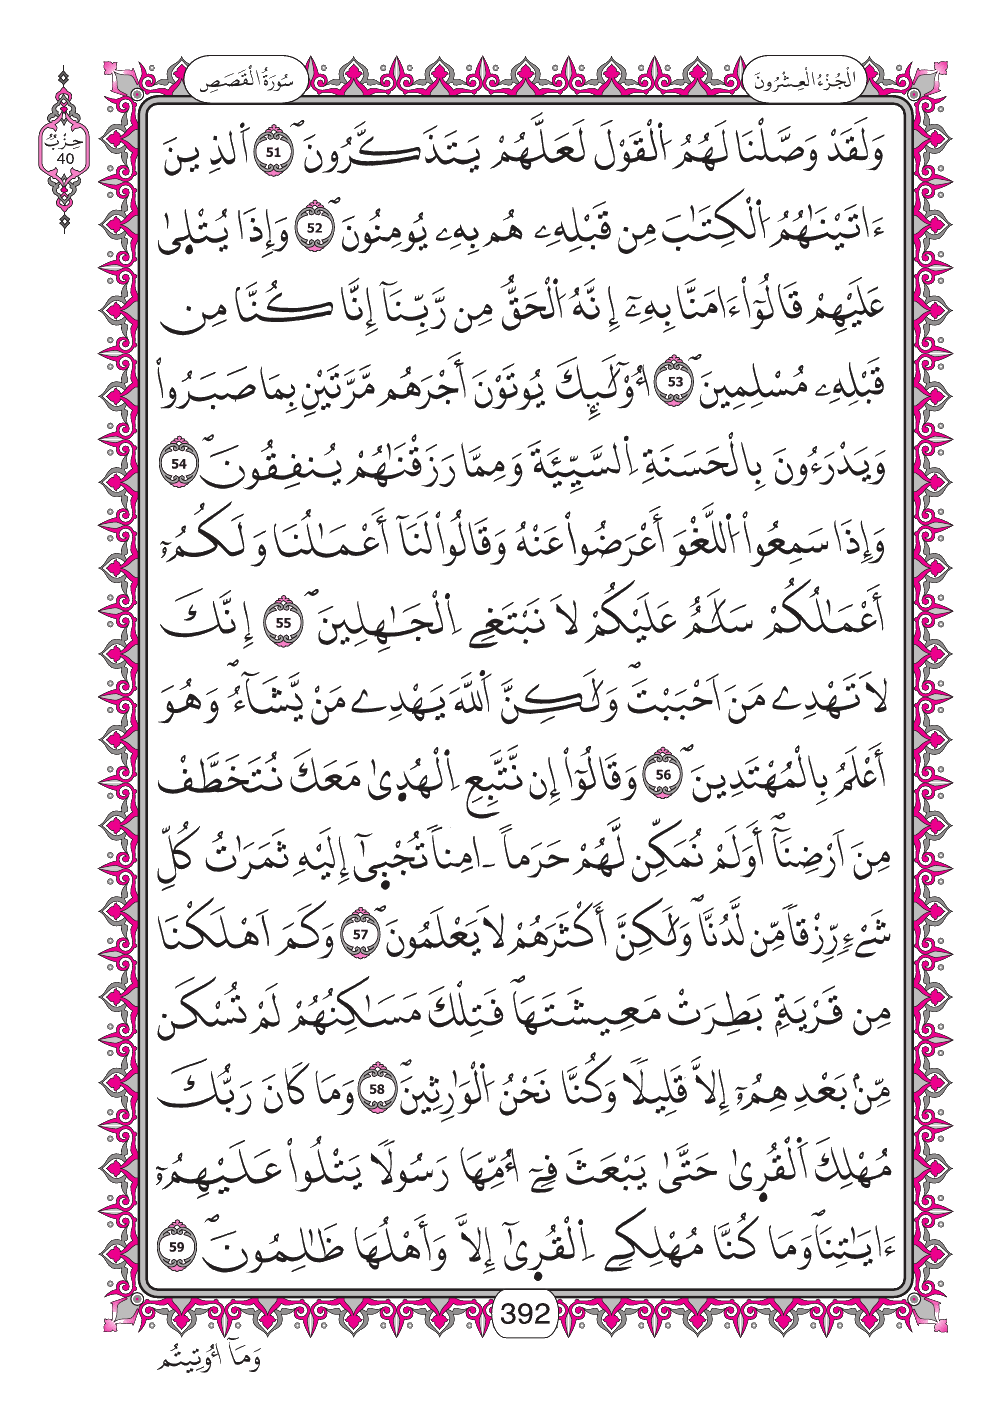 سُورَةُ الْقَصَصِ
الْجُزْءُ الْعِشْرُونَ
حِزْبُ
40
وَلَقَدْ وَصَّلْنَا لَهُمُ اُلْقَوْلَ لَعَلَّهُمْ يَتَذَكَّرُونَۖ 51 اَلذِينَ
ءَاتَيْنَٰهُمُ اُلْكِتَٰبَ مِن قَبْلِهِۦ هُم بِهِۦ يُومِنُونَۖ 52 وَإِذَا يُتْلٜىٰ
عَلَيْهِمْ قَالُوٓاْ ءَامَنَّا بِهِۦٓ إِنَّهُ اُلْحَقُّ مِن رَّبِّنَآ إِنَّا كُنَّا مِن
قَبْلِهِۦ مُسْلِمِينَۖ 53 أُوْلَٰٓئِكَ يُوتَوْنَ أَجْرَهُم مَّرَّتَيْنِ بِمَا صَبَرُواْ
وَيَدْرَءُونَ بِالْحَسَنَةِ اِلسَّيِّئَةَ وَمِمَّا رَزَقْنَٰهُمْ يُنفِقُونَۖ 54
وَإِذَا سَمِعُواْ اُللَّغْوَ أَعْرَضُواْ عَنْهُ وَقَالُواْ لَنَآ أَعْمَٰلُنَا وَلَكُمُۥٓ
أَعْمَٰلُكُمْ سَلَٰمٌ عَلَيْكُمْ لَا نَبْتَغِے اِلْجَٰهِلِينَۖ 55 إِنَّكَ
لَا تَهْدِے مَنَ اَحْبَبْتَۖ وَلَٰكِنَّ اَللَّهَ يَهْدِے مَنْ يَّشَآءُۖ وَهُوَ
أَعْلَمُ بِالْمُهْتَدِينَۖ 56 وَقَالُوٓاْ إِن نَّتَّبِعِ اِلْهُدٜىٰ مَعَكَ نُتَخَطَّفْ
مِنَ اَرْضِنَآۖ أَوَلَمْ نُمَكِّن لَّهُمْ حَرَماً ـ اٰمِناً تُجْبٜىٰٓ إِلَيْهِ ثَمَرَٰتُ كُلِّ
شَےْءٍ رِّزْقاً مِّن لَّدُنَّاۖ وَلَٰكِنَّ أَكْثَرَهُمْ لَا يَعْلَمُونَۖ 57 وَكَمَ اَهْلَكْنَا
مِن قَرْيَةِۭ بَطِرَتْ مَعِيشَتَهَاۖ فَتِلْكَ مَسَٰكِنُهُمْ لَمْ تُسْكَن
مِّنۢ بَعْدِهِمُۥٓ إِلَّا قَلِيلًا وَكُنَّا نَحْنُ اُلْوَٰرِثِينَۖ 58 وَمَا كَانَ رَبُّكَ
مُهْلِكَ اَلْقُرٜىٰ حَتَّىٰ يَبْعَثَ فِےٓ أُمِّهَا رَسُولًا يَتْلُواْ عَلَيْهِمُۥٓ
ءَايَٰتِنَاۖ وَمَا كُنَّا مُهْلِكِے اِلْقُرٜىٰٓ إِلَّا وَأَهْلُهَا ظَٰلِمُونَۖ 59
392
وَمَآ أُوتِيتُم